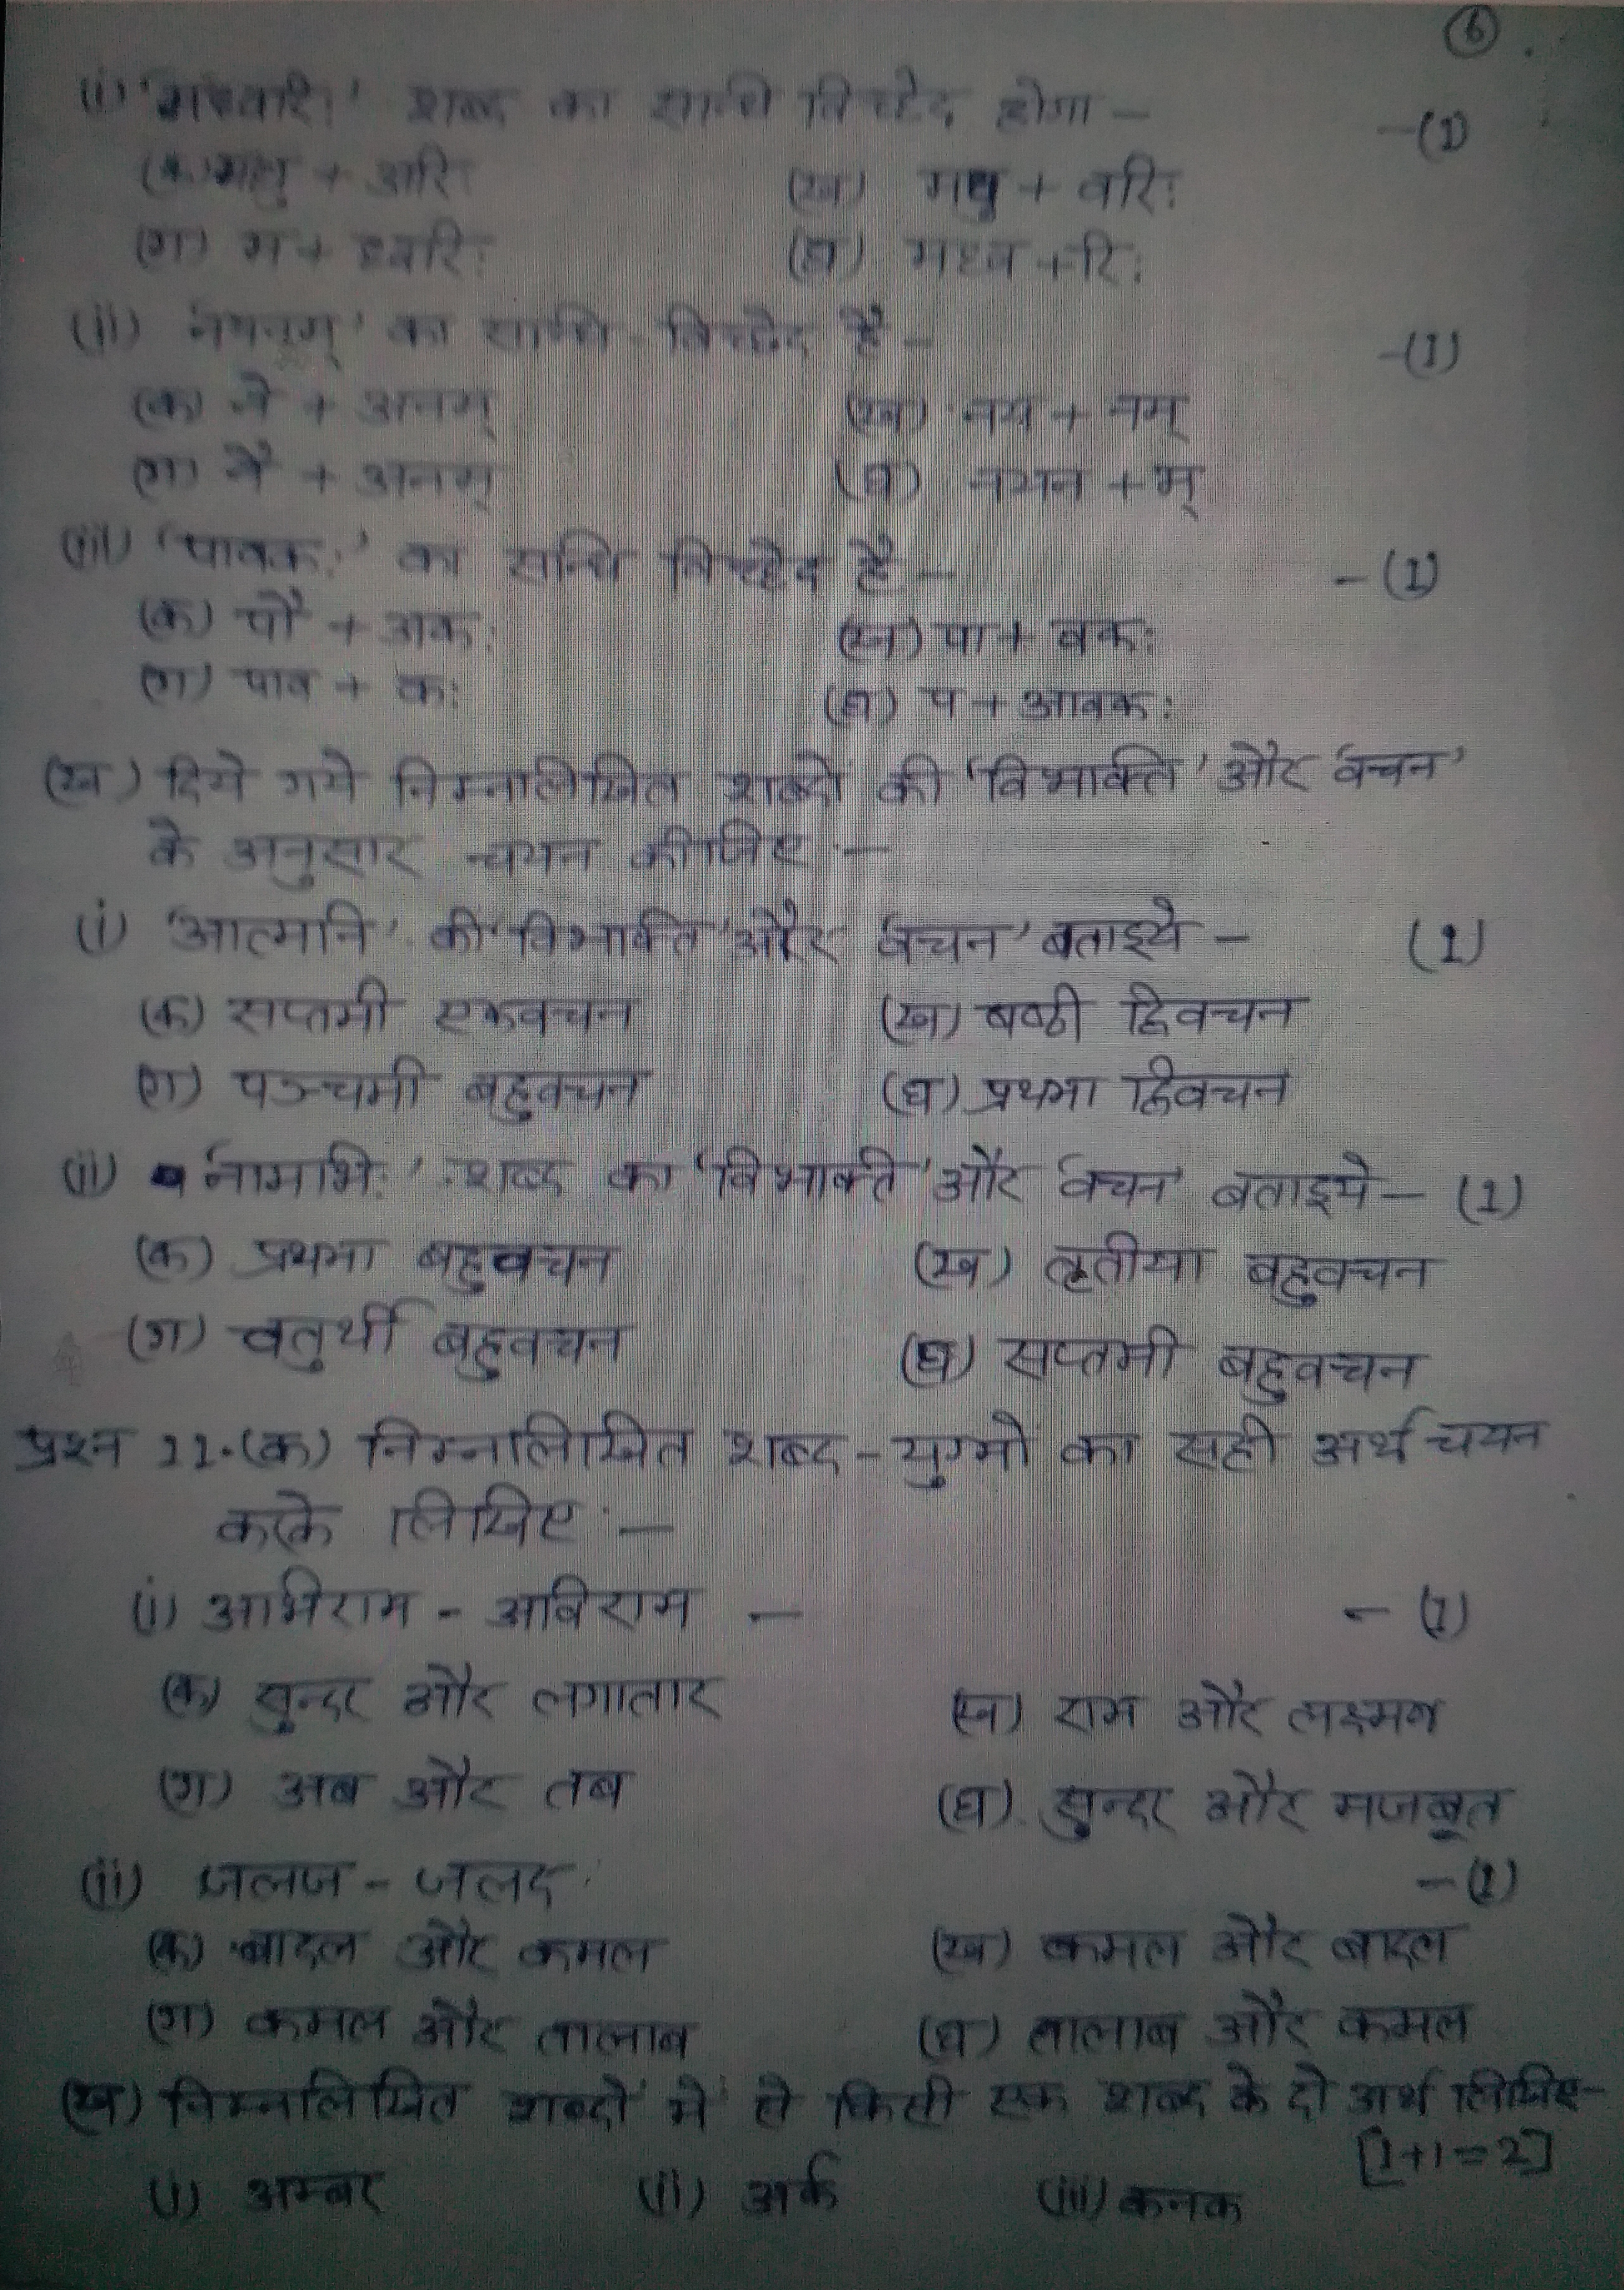 6
(i) 'मध्वरिः' शब्द का सन्धि विच्छेद होगा – –(1)
(क) मधु + अरिः (ख) मधु + वरिः
(ग) म + ध्वरिः (घ) मध्व + रिः
(ii) 'नयनम्' का सन्धि-विच्छेद है – –(1)
(क) ने + अनम् (ख) नय + नम्
(ग) नै + अनम् (घ) नयन + म्
(iii) 'पावकः' का सन्धि विच्छेद है – –(1)
(क) पौ + अकः (ख) पा + वकः
(ग) पाव + कः (घ) प + आवकः
(ख) दिये गये निम्नलिखित शब्दों की 'विभक्ति' और वचन'
के अनुसार चयन कीजिए :–
(i) 'आत्मनि' की 'विभक्ति' और 'वचन' बताइये – (1)
(क) सप्तमी एकवचन (ख) षष्ठी द्विवचन
(ग) पञ्चमी बहुवचन (घ) प्रथमा द्विवचन
(ii) 'नामभिः' शब्द का 'विभक्ति' और वचन' बताइये – (1)
(क) प्रथमा बहुवचन (ख) तृतीया बहुवचन
(ग) चतुर्थी बहुवचन (घ) सप्तमी बहुवचन
प्रश्न 11.(क) निम्नलिखित शब्द-युग्मों का सही अर्थ चयन
करके लिखिए :–
(i) अभिराम - अविराम – – (1)
(क) सुन्दर और लगातार (ख) राम और लक्ष्मण
(ग) अब और तब (घ) सुन्दर और मजबूत
(ii) जलज - जलद –(1)
(क) बादल और कमल (ख) कमल और बादल
(ग) कमल और तालाब (घ) तालाब और कमल
(ख) निम्नलिखित शब्दों में से किसी एक शब्द के दो अर्थ लिखिए-
[1+1=2]
(i) अम्बर (ii) अर्क (iii) कनक